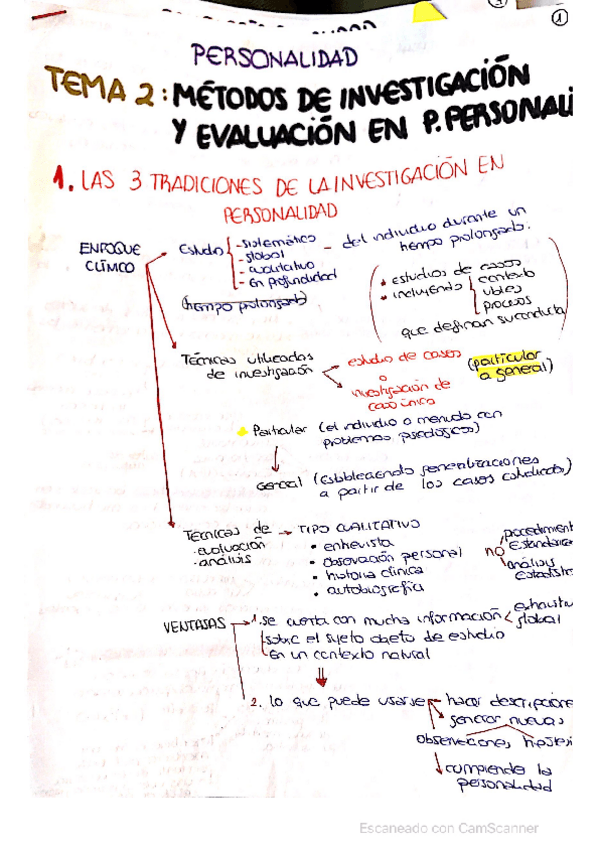 1
PERSONALIDAD
TEMA 2: MÉTODOS DE INVESTIGACIÓN
Y EVALUACIÓN EN P. PERSONALI
1. LAS 3 TRADICIONES DE LA INVESTIGACIÓN EN
PERSONALIDAD
ENFOQUE
CLÍNICO
Estudio
- sistemático
- global
- cualitativo
- en profundidad
- del individuo durante un
tiempo prolongado.
(tiempo prolongado)
• estudios de casos
• incluyendo
contexto
vbles
procesos
que definan su conducta
Técnicas utilizadas
de investigación
estudio de casos
o
investigación de
caso único
(particular
a general)
Particular (el individuo a menudo con
problemas psicológicos)
General (estableciendo generalizaciones
a partir de los casos estudiados)
Técnicas de
· evaluación
· análisis
TIPO CUALITATIVO
• entrevista
• observación personal
• historia clínica
• autobiografía
no
procedimient
estandariz
análisis
estadístic
VENTAJAS
1. se cuenta con mucha información
sobre el sujeto objeto de estudio
en un contexto natural
exhausti
global
2. lo que puede usarse
hacer descripcione
generar nuevas
observaciones, hipótesi
comprender la
personalidad
Escaneado con CamScanner